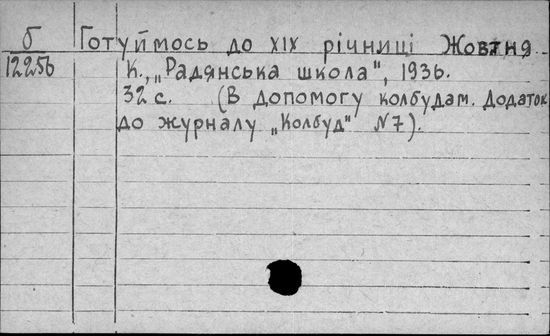 Б Готуймось до XIX річниці Жовтня
12256 К., „Радянська школа", 1936.
32 с. (В допомогу колбудам. Додаток
до журналу „Колбуд" N7).